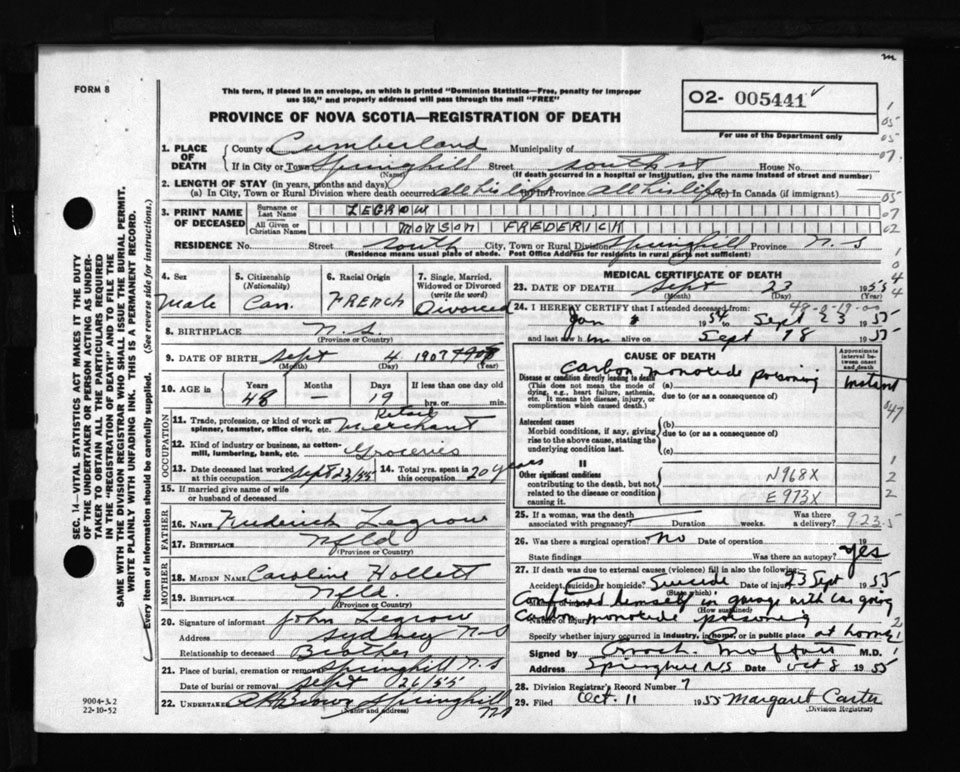 m
FORM 8
This form, if placed in an envelope, on which is printed "Dominion Statistics—Free, penalty for improper
use $50," and properly addressed will pass through the mail "FREE"
PROVINCE OF NOVA SCOTIA—REGISTRATION OF DEATH
O2- 005441
For use of the Department only
1. PLACE OF DEATH
County of Cumberland Municipality of
If in City or Town Springhill Street South st House No.
(Name) (If death occurred in a hospital or institution, give the name instead of street and number)
2. LENGTH OF STAY (in years, months and days)
(a) In City, Town or Rural Division where death occurred all his life In Province all his life (c) In Canada (if immigrant)
3. PRINT NAME OF DECEASED
Surname or Last Name LEGROW
All Given or Christian Names MONSON FREDERICK
RESIDENCE No. Street South City, Town or Rural Division Springhill Province N.S
(Residence means usual place of abode. Post Office Address for residents in rural parts not sufficient)
4. Sex 5. Citizenship 6. Racial Origin 7. Single, Married,
(Nationality) Widowed or Divorced
(write the word)
Male Can. FRENCH Divorced
8. BIRTHPLACE N.S.
(Province or Country)
9. DATE OF BIRTH Sept 4 1907
(Month) (Day) (Year)
10. AGE in Years Months Days If less than one day old
48 — 19 hrs. or min.
OCCUPATION
11. Trade, profession, or kind of work as spinner, teamster, office clerk, etc. Retail Merchant
12. Kind of industry or business, as cotton-mill, lumbering, bank, etc. Groceries
13. Date deceased last worked at this occupation Sept 23/55 14. Total yrs. spent in this occupation 20 years
15. If married give name of wife or husband of deceased
FATHER
16. NAME Frederick Legrow
17. BIRTHPLACE Nfld
(Province or Country)
MOTHER
18. MAIDEN NAME Caroline Hollett
19. BIRTHPLACE Nfld.
(Province or Country)
20. Signature of informant John Legrow
Address Sydney N-S
Relationship to deceased Brother
21. Place of burial, cremation or removal Springhill N.S
Date of burial or removal Sept 26/55
22. UNDERTAKER Brown Springhill NS
(Name and address)
MEDICAL CERTIFICATE OF DEATH
23. DATE OF DEATH Sept 23 1955
(Month) (Day) (Year)
24. I HEREBY CERTIFY that I attended deceased from: 48-0-19-00
Jan 1954 to Sept 23 1955
and last saw him alive on Sept 18 1955
CAUSE OF DEATH
Approximate interval between onset and death
Disease or condition directly leading to death (a) Carbon monoxide poisoning Instant
(This does not mean the mode of dying, e.g., heart failure, asthenia, etc. It means the disease, injury, or complication which caused death.)
due to (or as a consequence of)
Antecedent causes
Morbid conditions, if any, giving rise to the above cause, stating the underlying condition last.
(b)
due to (or as a consequence of)
(c)
II
Other significant conditions
contributing to the death, but not related to the disease or condition causing it.
N968X
E973X
25. If a woman, was the death associated with pregnancy? Duration weeks. Was there a delivery? 9.23.5
26. Was there a surgical operation? No Date of operation 19
State findings Was there an autopsy? Yes
27. If death was due to external causes (violence) fill in also the following:
Accident, suicide or homicide? Suicide Date of injury 23 Sept 1955
(State which)
Confined himself in garage with car going
(How sustained)
Nature of injury Carbon monoxide poisoning
Specify whether injury occurred in industry, in home, or in public place at home
Signed by M.D.
Address Springhill N/S Date Oct 8 1955
28. Division Registrar's Record Number 7
29. Filed Oct. 11 1955 Margaret Carter
(Division Registrar)
SEC. 14—VITAL STATISTICS ACT MAKES IT THE DUTY
OF THE UNDERTAKER OR PERSON ACTING AS UNDER-
TAKER TO OBTAIN ALL THE PARTICULARS REQUIRED
IN THE "REGISTRATION OF DEATH" AND TO FILE THE
SAME WITH THE DIVISION REGISTRAR WHO SHALL ISSUE THE BURIAL PERMIT.
WRITE PLAINLY WITH UNFADING INK. THIS IS A PERMANENT RECORD.
Every item of information should be carefully supplied. (See reverse side for instructions.)
9004-3.2
22-10-52